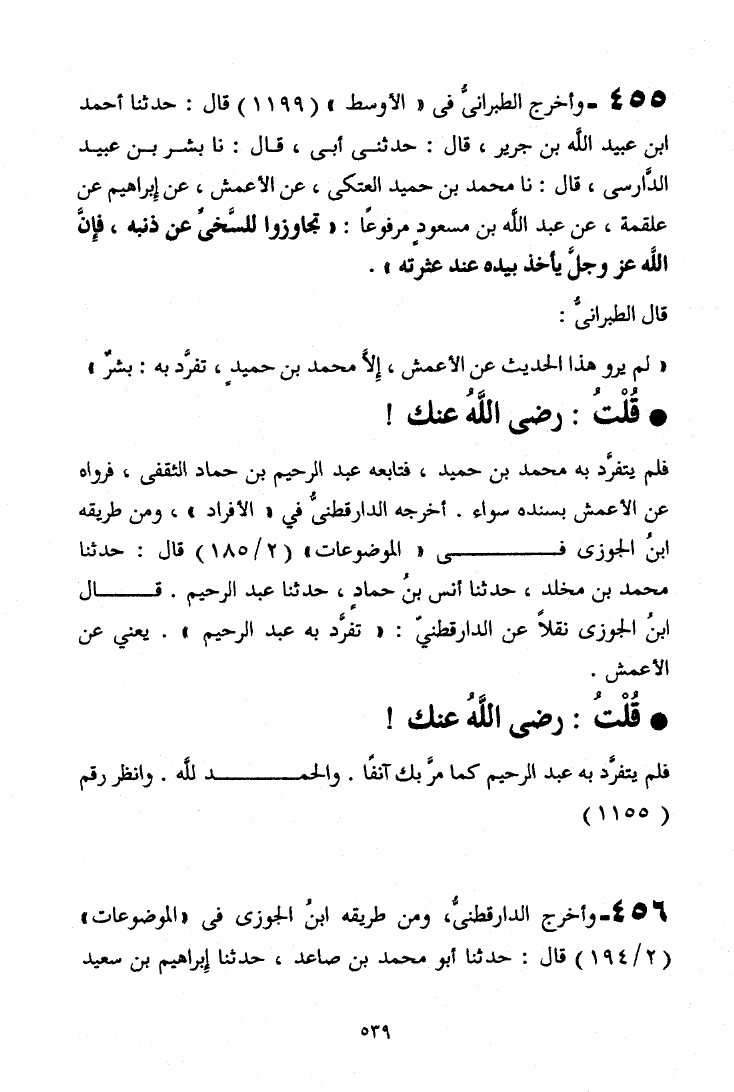 ٤٥٥ -وأخرج الطبرانىُّ فى « الأوسط » (١١٩٩) قال : حدثنا أحمد
ابن عبيد اللَّه بن جرير ، قال : حدثنى أبى ، قال : نا بشر بن عبيد
الدَّارسى ، قال : نا محمد بن حميد العتكى ، عن الأعمش ، عن إبراهيم عن
علقمة ، عن عبد اللَّه بن مسعودٍ مرفوعًا : « تجاوزوا للسَّخىِّ عن ذنبه ، فإنَّ
اللَّه عز وجلَّ يأخذ بيده عند عثرته » .
قال الطبرانىُّ :
« لم يرو هذا الحديث عن الأعمش ، إلاَّ محمد بن حميدٍ ، تفرَّد به : بشرٌ »
● قُلْتُ : رضى اللَّهُ عنك !
فلم يتفرَّد به محمد بن حميد ، فتابعه عبد الرحيم بن حماد الثقفى ، فرواه
عن الأعمش بسنده سواء . أخرجه الدارقطنىُّ في « الأفراد » ، ومن طريقه
ابنُ الجوزى فـــى « الموضوعات» (١٨٥/٢) قال : حدثنا
محمد بن مخلد ، حدثنا أنس بنُ حمادٍ ، حدثنا عبد الرحيم . قـــال
ابنُ الجوزى نقلاً عن الدارقطنيّ : « تفرَّد به عبد الرحيم » . يعني عن
الأعمش .
● قُلْتُ : رضى اللَّهُ عنك !
فلم يتفرَّد به عبد الرحيم كما مرَّ بك آنفًا . والحمـــد للَّه . وانظر رقم
( ١١٥٥ )
٤٥٦-وأخرج الدارقطنىُّ، ومن طريقه ابنُ الجوزى فى «الموضوعات»
(١٩٤/٢) قال : حدثنا أبو محمد بن صاعد ، حدثنا إبراهيم بن سعيد
٥٣٩